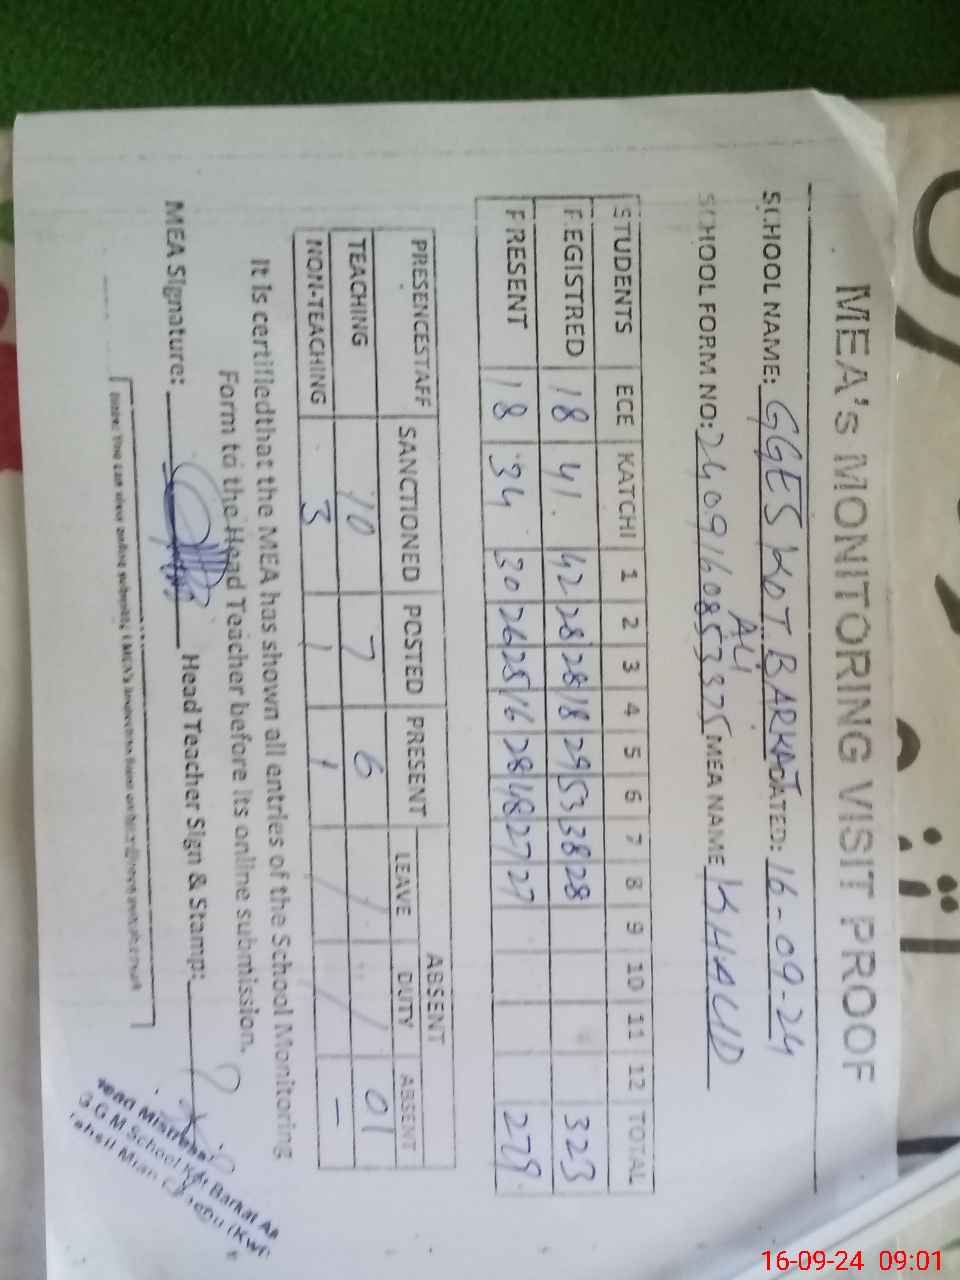 MEA'S MONITORING VISIT PROOF
SCHOOL NAME: GGES KOT BARKAT ALI DATED: 16-09-24
SCHOOL FORM NO: 2409160853375 MEA NAME KHALID
STUDENTS ECE KATCHI 1 2 3 4 5 6 7 8 9 10 11 12 TOTAL
REGISTRED 18 41 42 28 28 18 29 53 38 28 323
PRESENT 18 34 30 26 25 16 28 48 27 27 279
ABSENT
PRESENCESTAFF SANCTIONED POSTED PRESENT LEAVE DUTY ABSENT
TEACHING 10 7 6 / / 01
NON-TEACHING 3 1 1 / / -
It is certifiedthat the MEA has shown all entries of the School Monitoring
Form to the Head Teacher before its online submission.
MEA Signature: Head Teacher Sign & Stamp:
Head Mistress
G G M School Kot Barkat Ali
Tehsil Mian Channu (Kwl
16-09-24 09:01